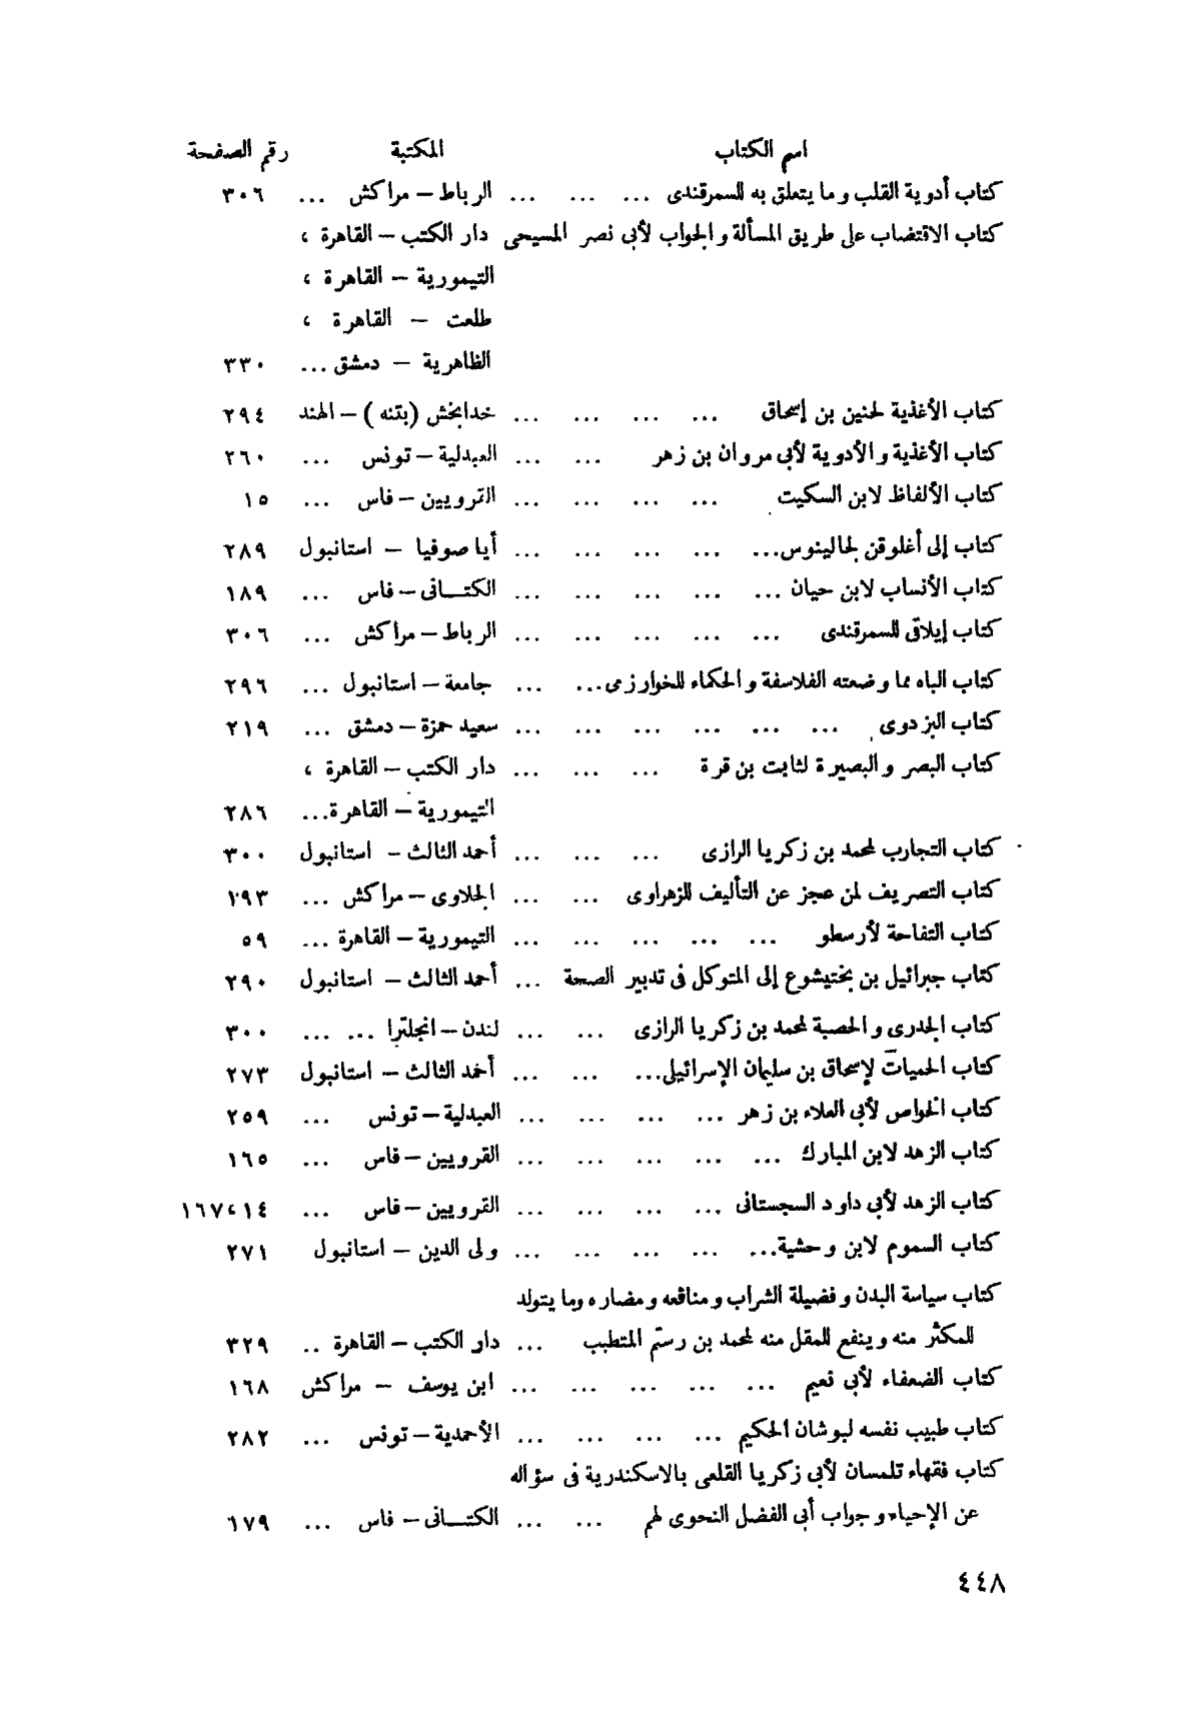 اسم الكتاب المكتبة رقم الصفحة
كتاب أدوية القلب وما يتعلق به للسمرقندى ... ... ... الرباط – مراكش ... ٣٠٦
كتاب الاقتضاب على طريق المسألة والجواب لأبى نصر المسيحى دار الكتب – القاهرة ،
التيمورية – القاهرة ،
طلعت – القاهرة ،
الظاهرية – دمشق ... ٣٣٠
كتاب الأغذية لحنين بن إسحاق ... ... ... ... خدابخش (بتنه) – الهند ٢٩٤
كتاب الأغذية والأدوية لأبى مروان بن زهر ... ... العبدلية – تونس ... ٢٦٠
كتاب الألفاظ لابن السكيت ... ... ... ... القرويين – فاس ... ١٥
كتاب إلى أغلوقن لجالينوس... ... ... ... ... أيا صوفيا – استانبول ٢٨٩
كتاب الأنساب لابن حيان ... ... ... ... ... الكتــانى – فاس ... ١٨٩
كتاب إيلاقى للسمرقندى ... ... ... ... ... الرباط – مراكش ... ٣٠٦
كتاب الباه مما وضعته الفلاسفة والحكماء للخوارزمى... ... جامعة – استانبول ... ٢٩٦
كتاب البزدوى ... ... ... ... ... ... سعيد حمزة – دمشق ... ٢١٩
كتاب البصر والبصيرة لثابت بن قرة ... ... ... دار الكتب – القاهرة ،
التيمورية – القاهرة... ٢٨٦
كتاب التجارب لمحمد بن زكريا الرازى ... ... ... أحمد الثالث – استانبول ٣٠٠
كتاب التصريف لمن عجز عن التأليف للزهراوى ... ... الجلاوى – مراكش ... ٢٩٣
كتاب التفاحة لأرسطو ... ... ... ... ... التيمورية – القاهرة ... ٥٩
كتاب جبرائيل بن بختيشوع إلى المتوكل فى تدبير الصحة ... أحمد الثالث – استانبول ٢٩٠
كتاب الجدرى والحصبة لمحمد بن زكريا الرازى ... ... لندن – انجلترا ... ... ٣٠٠
كتاب الحميات لإسحاق بن سليمان الإسرائيلى... ... ... أحمد الثالث – استانبول ٢٧٣
كتاب الخواص لأبى العلاء بن زهر ... ... ... ... العبدلية – تونس ... ٢٥٩
كتاب الزهد لابن المبارك ... ... ... ... ... القرويين – فاس ... ١٦٥
كتاب الزهد لأبى داود السجستانى ... ... ... ... القرويين – فاس ... ١٤،١٦٧
كتاب السموم لابن وحشية... ... ... ... ... ولى الدين – استانبول ٢٧١
كتاب سياسة البدن وفضيلة الشراب ومنافعه ومضاره وما يتولد
للمكثر منه وينفع للمقل منه لمحمد بن رستم المتطبب ... دار الكتب – القاهرة .. ٣٢٩
كتاب الضعفاء لأبى نعيم ... ... ... ... ... ابن يوسف – مراكش ١٦٨
كتاب طبيب نفسه لبوشان الحكيم ... ... ... ... الأحمدية – تونس ... ٢٨٢
كتاب فقهاء تلمسان لأبى زكريا القلعى بالاسكندرية فى سؤاله
عن الإحياء وجواب أبى الفضل النحوى لهم ... ... الكتــانى – فاس ... ١٧٩
٤٤٨